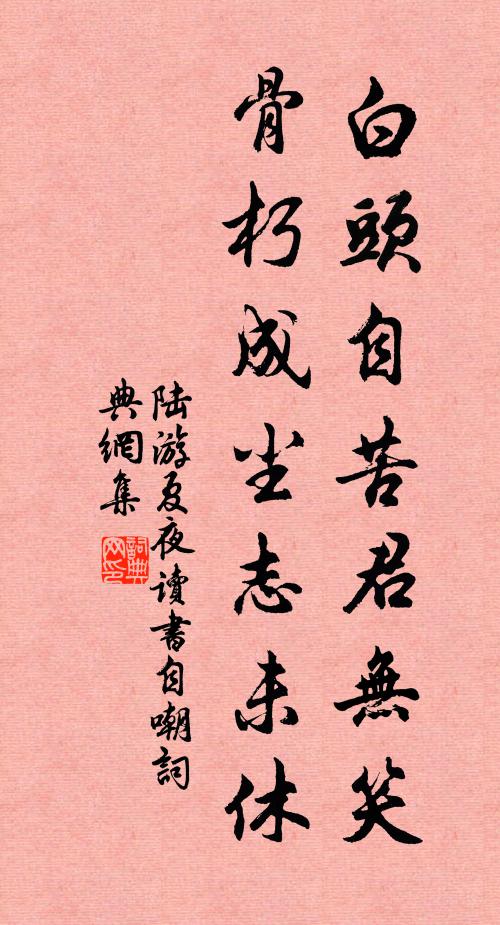 白頭自苦君無笑
骨朽成尘志未休
陆游夏夜讀書自嘲詞
典網集
詞典網印